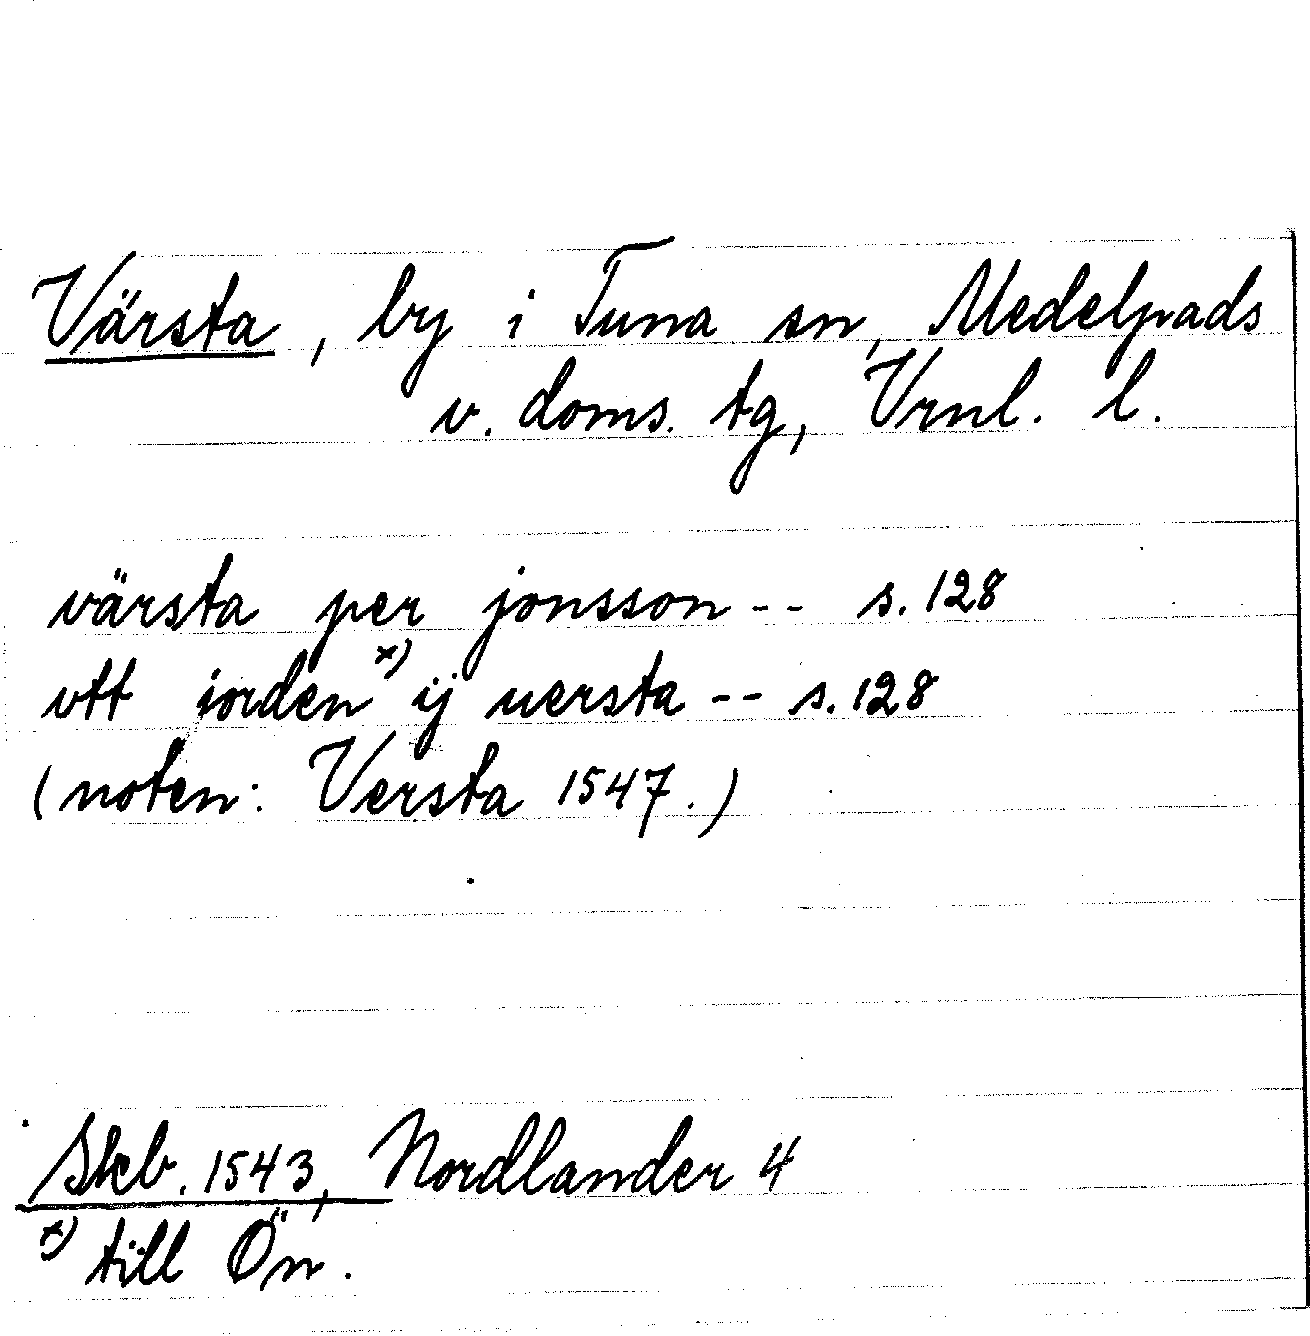 Värsta, by i Tuna sn, Medelpads
v. doms. tg, Vrnl. l.
värsta per jonsson -- s. 128
vtt iorden x) ij uersta -- s. 128
(noten: Versta 1547.)
Skb. 1543, Nordlander 4
x) till Ön.